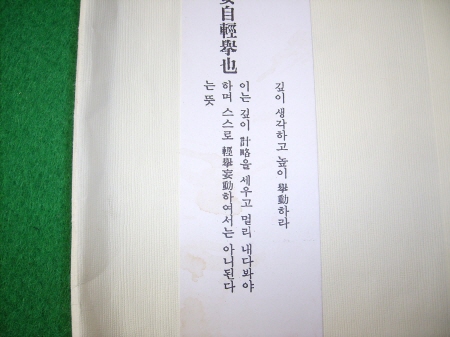 自輕擧也
깊이 생각하고 높이 擧動하라
이는 깊이 計略을 세우고 멀리 내다봐야
하며 스스로 輕擧妄動하여서는 아니된다
는 뜻